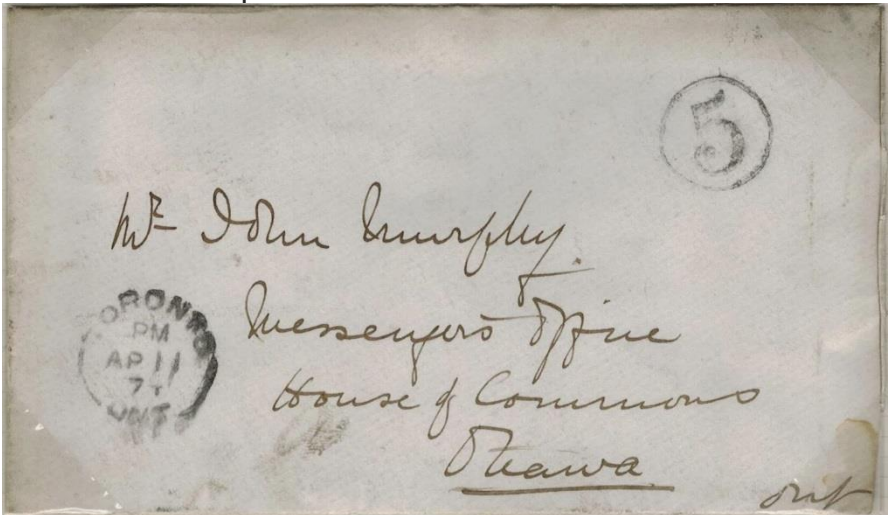 5
Mr John Murphy
Messengers Office
House of Commons
Ottawa
Ont
TORONTO
PM
AP 11
ONT